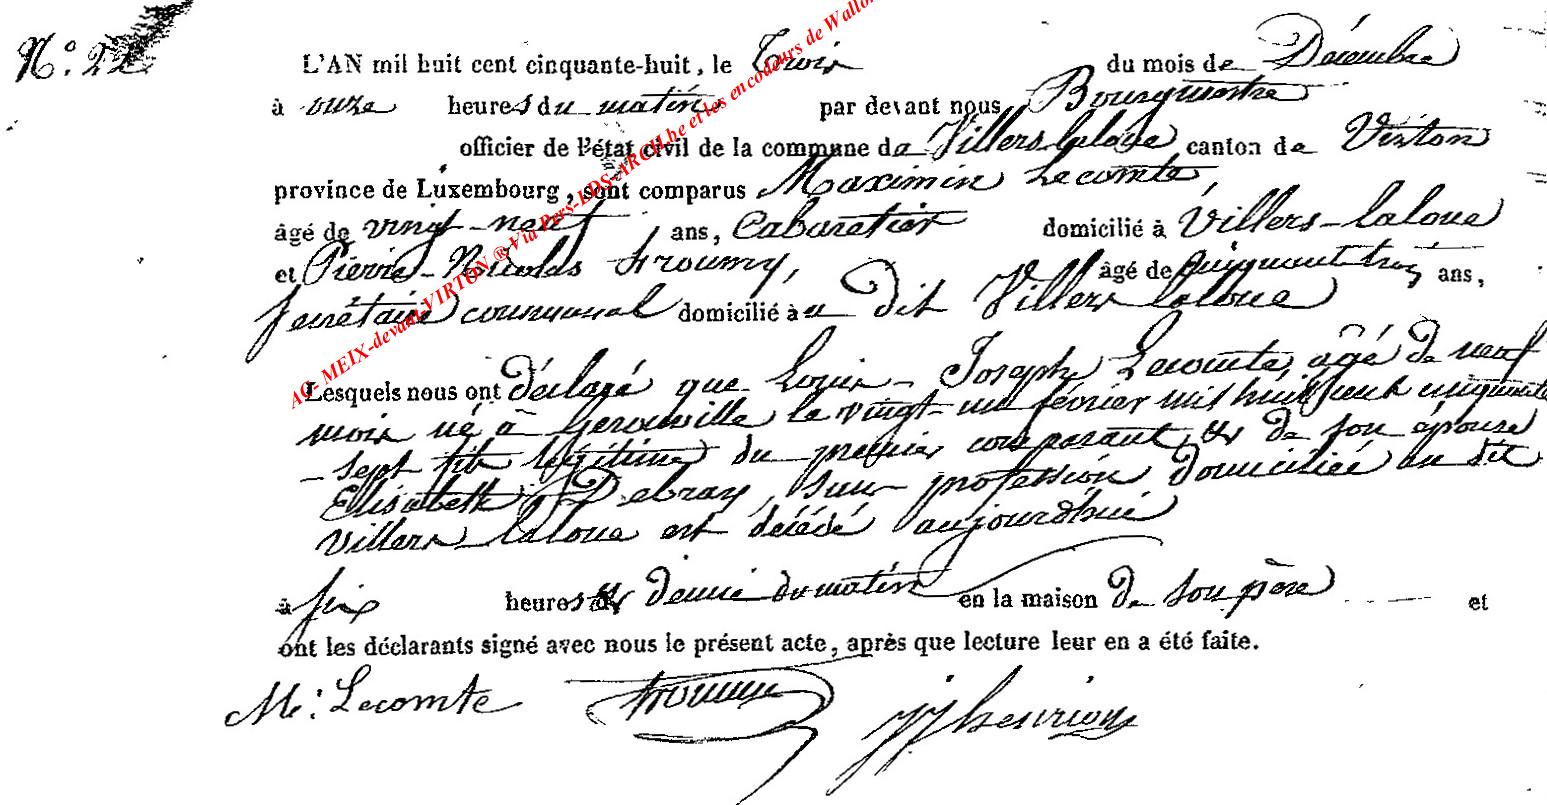 N.º 22
L'AN mil huit cent cinquante-huit, le Trois du mois de Décembre
à onze heures du matin par devant nous Bourgmestre
officier de l'état civil de la commune de Villers laloue canton de Virton
province de Luxembourg, sont comparus Maximin Lecomte
âgé de vingt-neuf ans, Cabaretier domicilié à Villers-laloue
et Pierre-Nicolas âgé de cinquante trois ans,
secrétaire communal domicilié à u dit Villers laloue
Lesquels nous ont déclaré que Louis-Joseph Lecomte, âgé de neuf
mois né à Gerouville le vingt-un février mil huit cent cinquante
-sept fils légitime du premier comparant, & de son épouse
Elisabeth Debray, sans profession domiciliée au dit
Villers laloue est décédé aujourd'hui
à six heures & demie du matin en la maison de son père et
ont les déclarants signé avec nous le présent acte, après que lecture leur en a été faite.
M: Lecomte JJ henrion
AG- MEIX-devant-VIRTON ® Via Pers-LDS-ARCH.be et les encodeurs de Wallon